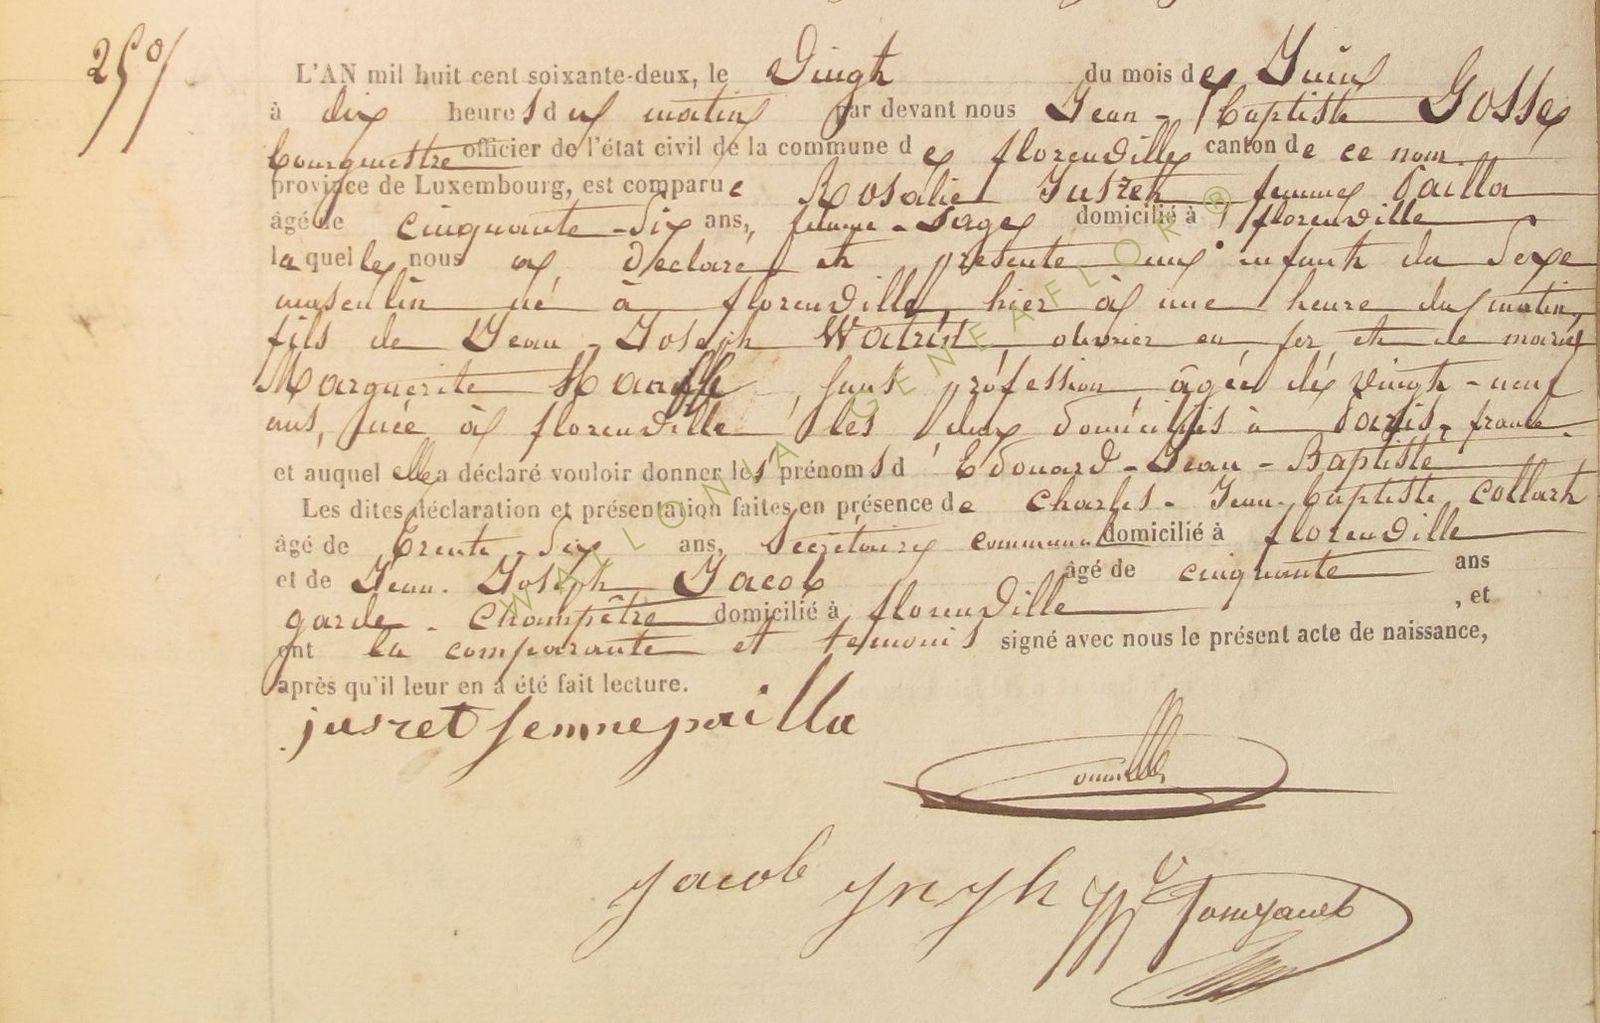 25
L'AN mil huit cent soixante-deux, le Vingt du mois de Juin
à dix heures du matin par devant nous Jean-Baptiste Gosse
bourgmestre officier de l'état civil de la commune de florenville canton de ce nom
province de Luxembourg, est comparue Rosalie Jusreth femme Pailla
âgé de cinquante-six ans, femme-sage domicilié à florenville
la quelle nous a déclaré et présenté un enfant du sexe
masculin né à florenville, hier à une heure du matin,
fils de Jean-Joseph Watrin, ouvrier en fer et de marie
Marguerite, sans proféssion, âgée de vingt-neuf
ans, née à florenville les deux domiciliés à Paris, france.
et auquel elle a déclaré vouloir donner les prénoms d'Edouard-Jean-Baptiste
Les dites déclaration et présentation faites en présence de Charles-Jean-baptiste Collart
âgé de trente-six ans, Secrétaire communal domicilié à florenville
et de Jean-Joseph Jacob âgé de cinquante ans
garde-champêtre domicilié à florenville, et
ont la comparante et témoins signé avec nous le présent acte de naissance,
après qu'il leur en a été fait lecture.
jusret femme pailla
jacob
WALLONIA GENEAFLOR ®